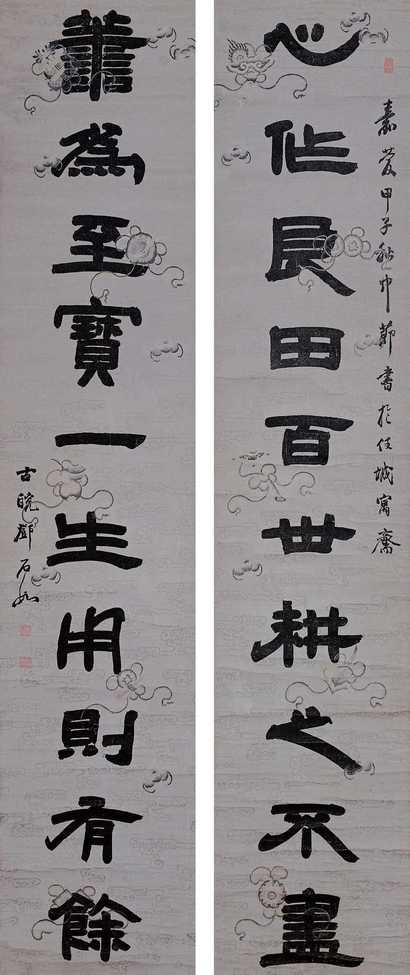 嘉慶甲子秋中節書於任城寓齋
心作良田百世耕之不盡
譱為至寶一生用則有餘
古皖鄧石如